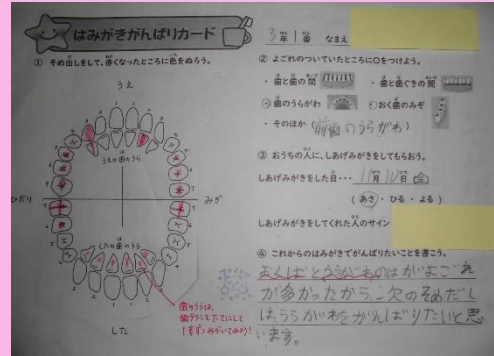 はみがきがんばりカード
3年1番 なまえ
① そめ出しをして、赤くなったところに色をぬろう。
うえ
うえの歯のうら
ひだり
みぎ
したの歯のうら
した
歯のうらは、
歯ブラシをたてにして
1本ずつみがいてみよう!
② よごれのついていたところに○をつけよう。
・歯と歯の間
・歯と歯ぐきの間
・歯のうらがわ
・おく歯のみぞ
・そのほか(前歯のうらがわ)
③ おうちの人に、しあげみがきをしてもらおう。
しあげみがきをした日・・・ 11月10日(金)
(あさ・ひる・よる)
しあげみがきをしてくれた人のサイン
④ これからのはみがきでがんばりたいことを書こう。
が多かったから、次のそめだし
はうらがわをがんばりたいと思
います。